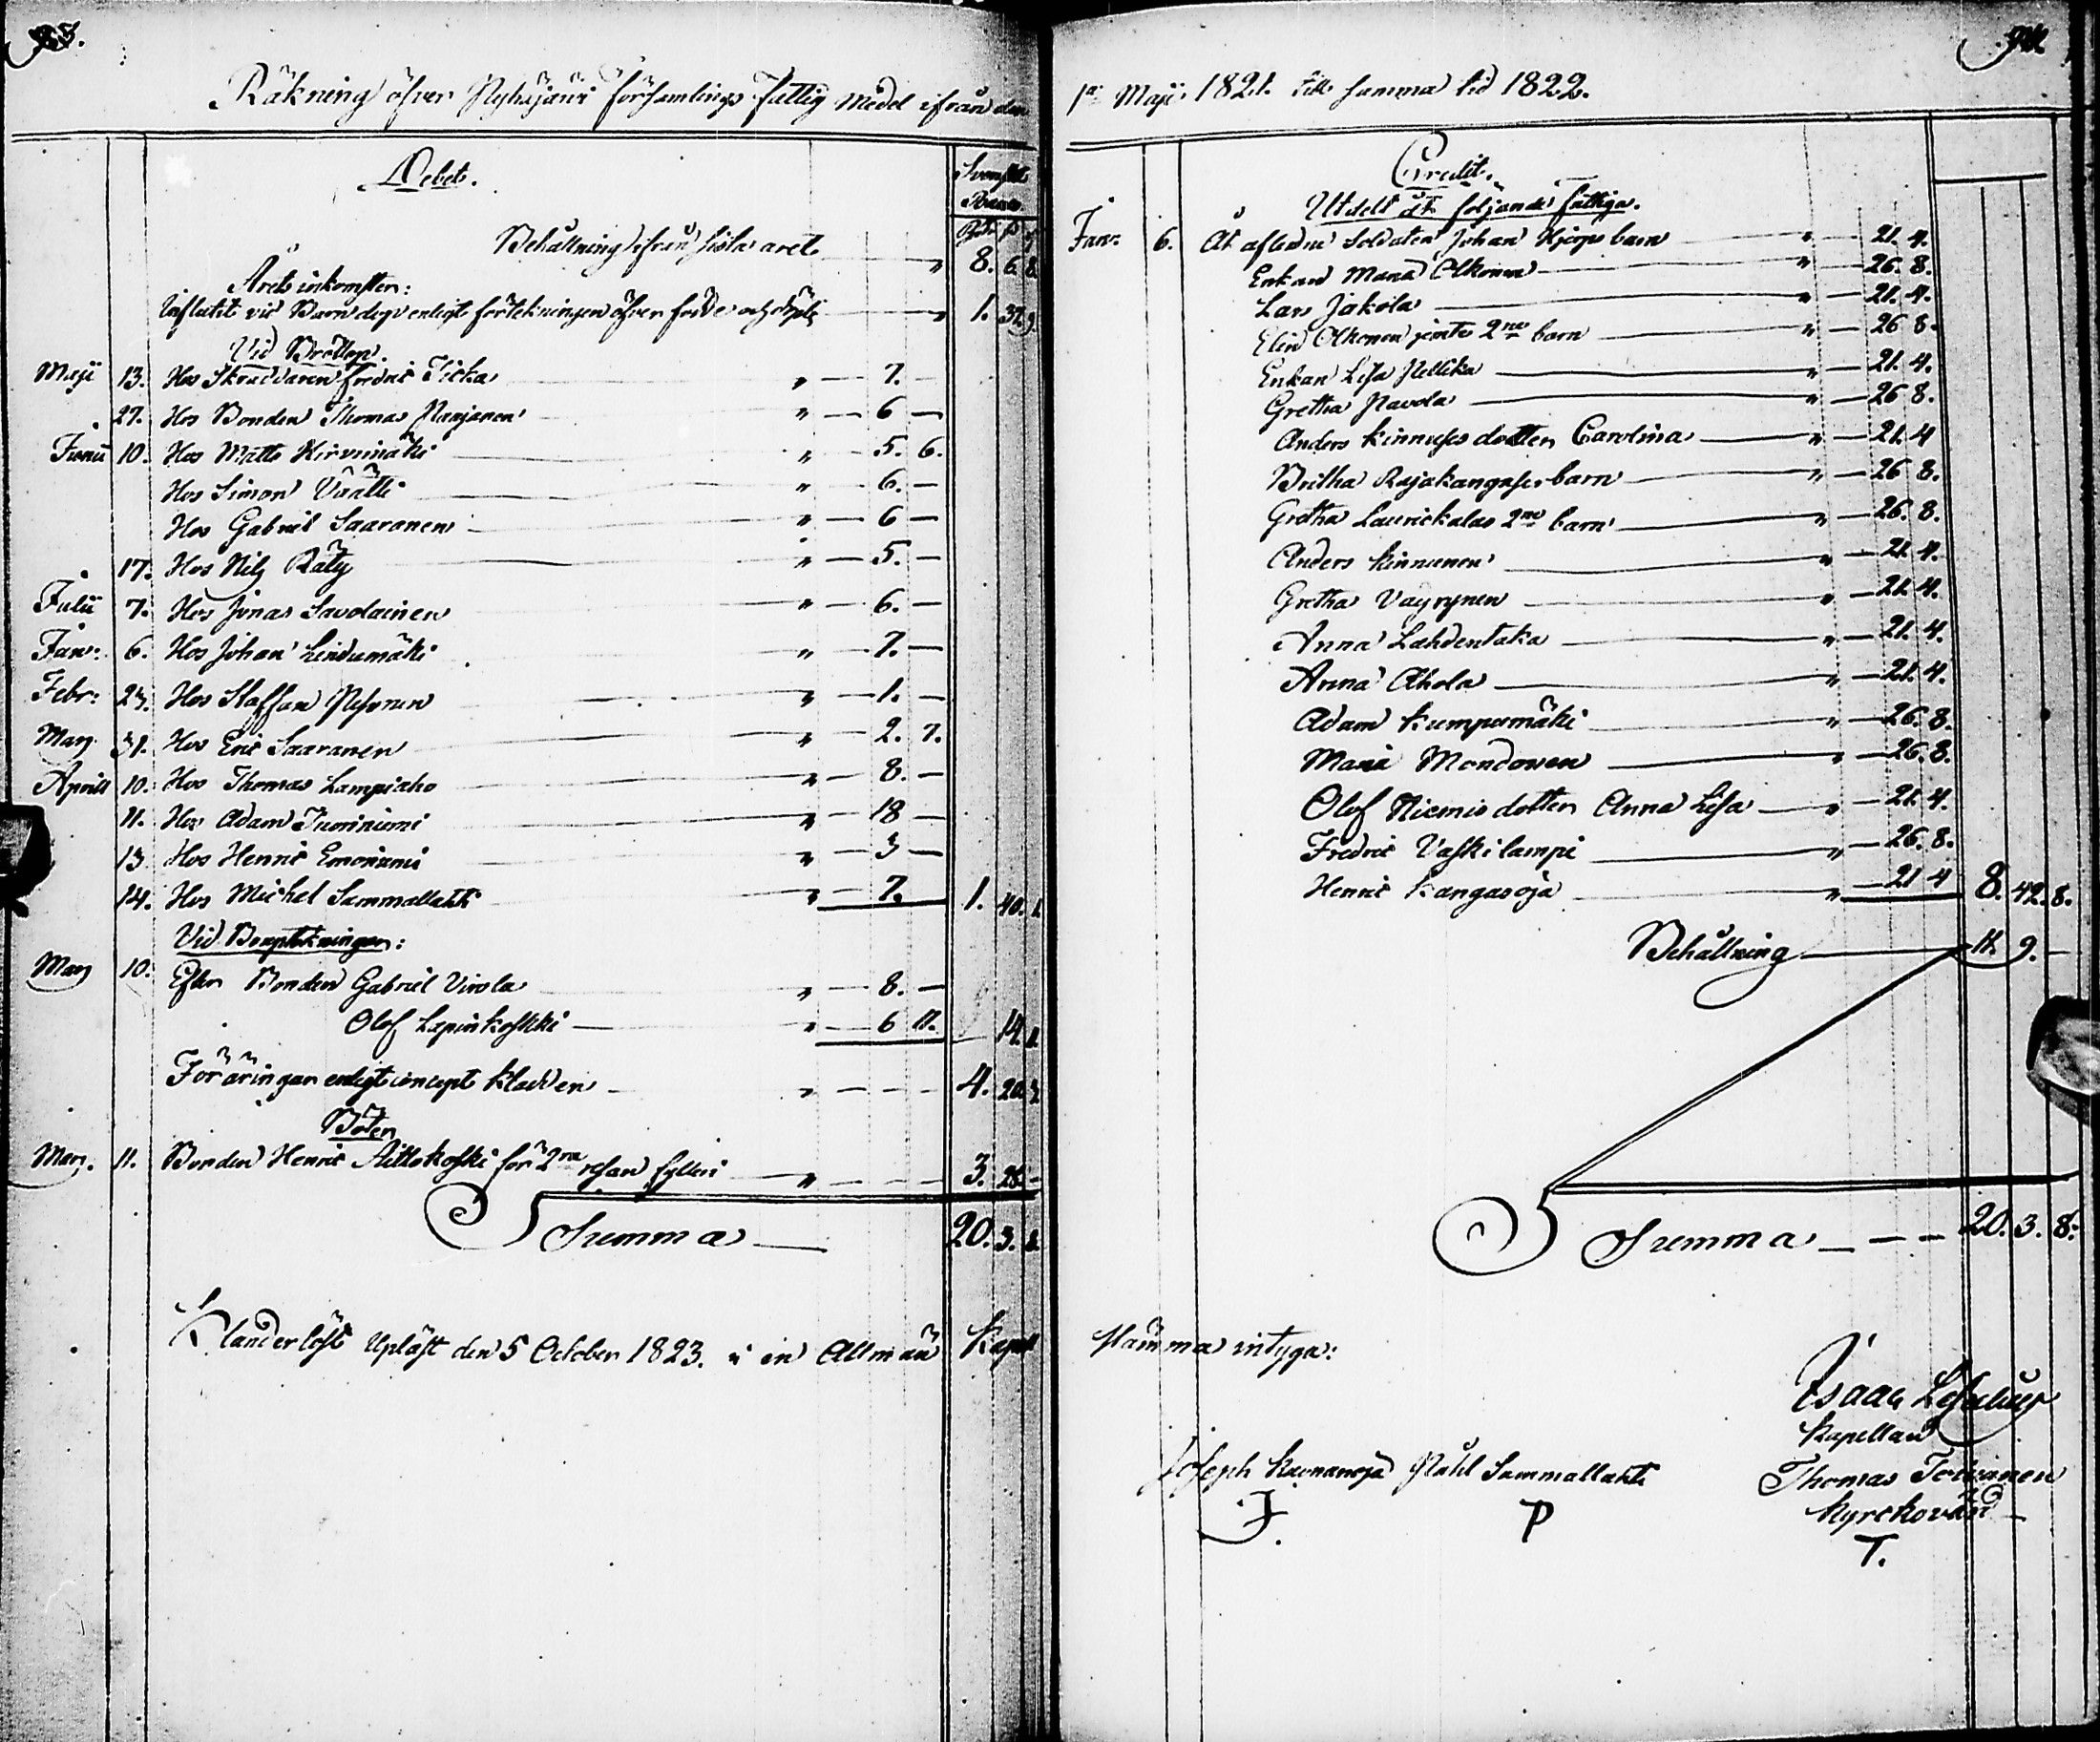 Räkning öfver Pyhäjärvi församlings Fattig Medel ifrån den
Debet.
Svenskt
Banco.
Behållning ifrån sista året " 8. 6. 8.
Årets inkomster:
Influtit vid Barndop enligt förtekningen öfver födde och döpte " 1. 32. 9.
Vid Bröllop.
Maji 13. Hos Skräddaren Fredric Ticka " — 7. —
27. Hos Bonden Thomas Manjanen " — 6 —
Junii 10. Hos Matts Hirvinäki " — 5. 6.
Hos Simon Väätti " — 6. —
Hos Gabriel Saaranen " — 6 —
17. Hos Nils Räty " — 5. —
Julii 7. Hos Jonas Savolainen " — 6. —
Janr: 6. Hos Johan Lindumäki " — 7. —
Febr: 23. Hos Staffan Pesonen " — 1. —
Mars 31. Hos Eric Saaranen " — 2. 7.
Aprill 10. Hos Thomas Lampiaho " — 8. —
11. Hos Adam Tuoriniemi " — 18 —
13. Hos Henric Emoniemi " — 3 —
14. Hos Michel Sammallahti " — 7. 1. 40. 1.
Vid Bouptekningar:
Mars 10. Efter Bonden Gabriel Virola " — 8. —
Olof Lapinkoski " — 6 11. 14. 11.
Föräringar enligt concept kladden " — — — 4. 20. 3
Böter
Mars. 11. Bonden Henric Aittokoski för 2ra resan fylleri " — — — 3. 28. —
Summa — 20. 3. 8.
Klanderlöst Upläst den 5 October 1823. i en Allmän Kapell
1a Maji 1821. till samma tid 1822.
Credit.
Utdelt åt följande fattiga.
Janr: 6. Åt afledne Soldaten Johan Hjerps barn " — 21. 4.
Enkan Maria Olkonen " — 26. 8.
Lars Jakola " — 21. 4.
Elin Olkonen jemte 2ne barn " — 26 8.
Enkan Lisa Pellika " — 21. 4.
Gretha Navola " — 26 8.
Anders Kinnuses dotter Carolina " — 21. 4
Britha Rajakangases barn " — 26 8.
Gretha Laurickalas 2ne barn " — 26. 8.
Anders Kinnunen " — 21 4.
Gretha Väyrynen " — 21. 4.
Anna Lahdentaka " — 21. 4.
Anna Ahola " — 21. 4.
Adam Kumpumäki " — 26. 8.
Maria Mondonen " — 26. 8.
Olof Niemis dotter Anna Lisa " — 21. 4.
Fredric Vaskilampi " — 26. 8.
Henric Kangasoja " — 21 4 8. 42. 8.
Behållning — 11. 9. —
Summa — — — 20. 3. 8.
stämma intyga:
Isaac
Kapellan
Joseph Karnanoja Påhl Sammallahti Thomas Toivanen
Kyrckovärd
J. P T.